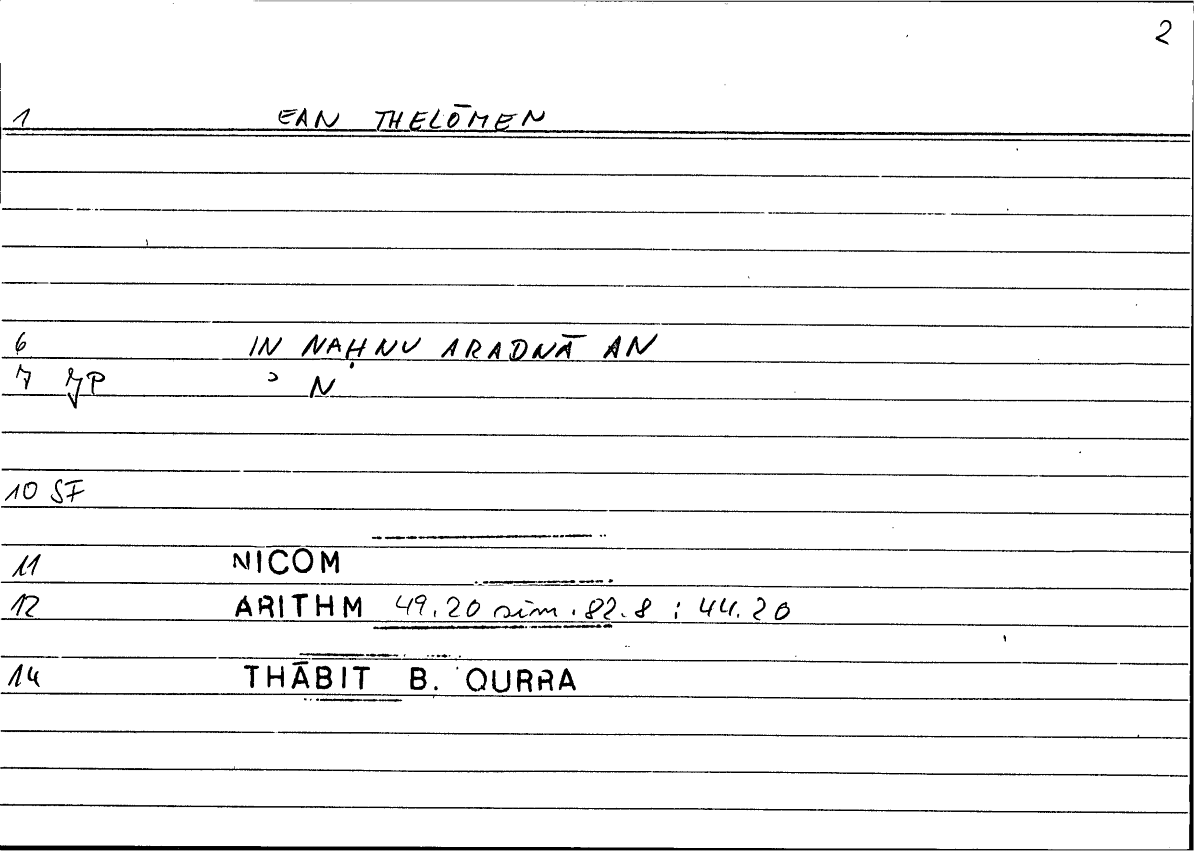 2
1 EAN THELŌMEN
6 IN NAḤNU ARADNĀ AN
7 JP ͗ N
10 SF
11 NICOM
12 ARITHM 49.20 sim. 82.8 ; 44.20
14 THĀBIT B. QURRA